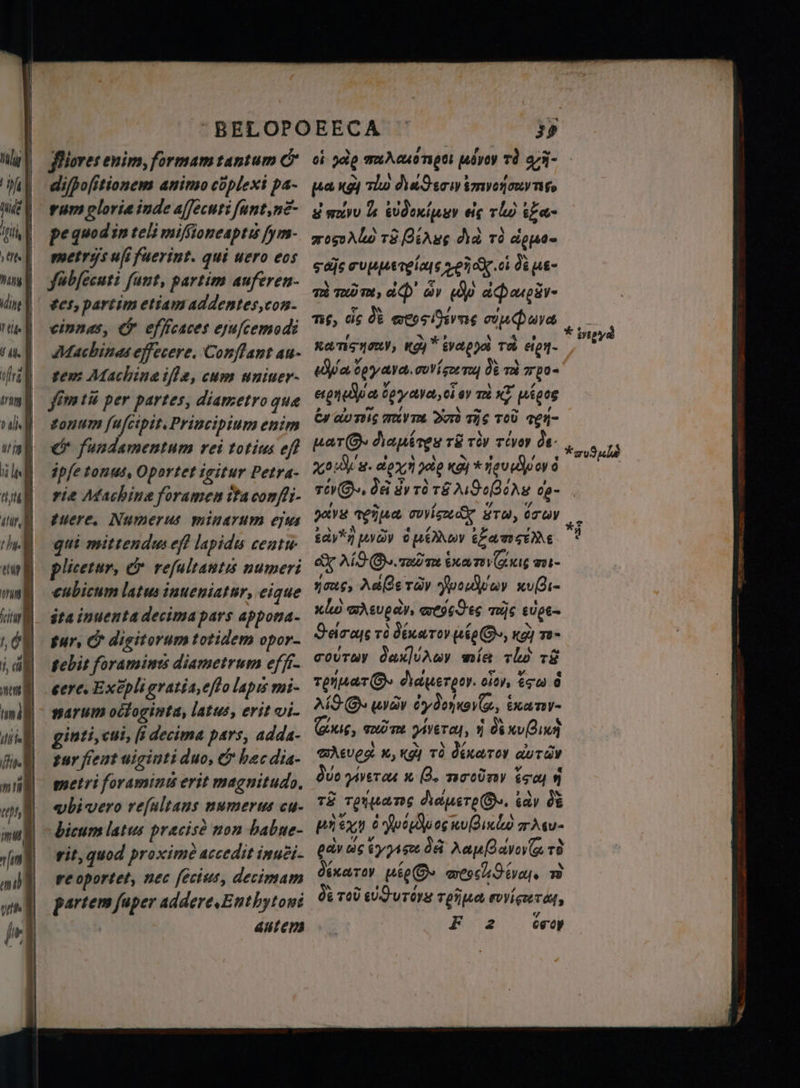 BELOPOEECA 39
ſtiores enim, formam tantum &
diſpoſitionem animo cõplexi pa-
rum gloriæ inde aſſecuti ſunt, nẽ-
pe quod in teli miſſione aptis ſym-
metrijs uſi fuerint. qui uero eos
ſubſecuti ſunt, partim auferen-
tes, partim etiam addentes, con-
cinnas, & efficaces ejuſcemodi
Machinas effecere. Conſtant au-
tem Machinæ iſtæ, cum uniuer-
ſim tũ per partes, diametro quæ
tonum ſuſcipit. Principium enim
& fundamentum rei totius eſt
ipſe tonus, Oportet igitur Petra-
riæ Machinæ foramen ita conſti-
tuere. Numerus minarum ejus
qui mittendus eſt lapidis centu-
plicetur, & reſultantis numeri
cubicum latus inueniatur, eique
ita inuenta decima pars appona-
tur, & digitorum totidem opor-
tebit foraminis diametrum effi-
cere. Exẽpli gratia, eſto lapis mi-
narum octoginta, latus, erit vi-
ginti, cui, ſi decima pars, adda-
tur fient uiginti duo, & hæc dia-
metri foraminis erit magnitudo,
ubi vero reſultans numerus cu-
bicum latus præcisè non habue-
rit, quod proximè accedit inuẽi-
re oportet, nec ſecius, decimam
partem ſuper addere. Euthytoni
autem
οἱ γὰρ παλαιότεροι μόνον τὸ σχῆ-
μα καὶ τὴν διάθεσιν ἐπινοήσαντες,
οὐ πάνυ τι εὐδοκίμουν εἰς τὴν ἐξα-
ποστολὴν τοῦ βέλους διὰ τὸ ἁρμο-
σταῖς συμμετρίαις χρῆσθαι. οἱ δὲ με-
τὰ ταῦτα, ἀφ' ὧν μὲν ἀφαιροῦν-
τες, οἷς δὲ προστιθέντες σύμφωνα
κατέστησαν, καὶ * ἐναργὰ τὰ εἰρη-
μένα ὄργανα. συνίσταται δὲ τὰ προ-
ειρημένα ὄργανα, οἱ ἐν τὰ κατὰ μέρος
ἐν αὐτοῖς πάντα ἀπὸ τῆς τοῦ τρή-
ματος διαμέτρου τοῦ τὸν τόνον δε-
χομένου. ἀρχὴ γὰρ καὶ * ἡγουμένον ὁ
τόνος, δεῖ οὖν τὸ τοῦ λιθοβόλου ὀρ-
γάνου τρῆμα συνίστασθαι οὕτω, ὅσων
ἐὰν * ἡ μνῶν ὁ μέλλων ἐξαποστέλλε-
σθαι λίθος. ταῦτα ἑκατοντάκις ποι-
ήσας, λάβε τῶν γενομένων κυβι-
κὴν πλευρὰν, προσθεὶς ταῖς εὑρε-
θείσαις τὸ δέκατον μέρος, καὶ το-
σούτων δακτύλων ποίει τὴν τοῦ
τρήματος διάμετρον. οἷον, ἔστω ὁ
λίθος μνῶν ὀγδοήκοντα, ἑκατον-
τάκις, ταῦτα γίνεται, ἡ δὲ κυβικὴ
πλευρὰ κ, καὶ τὸ δέκατον αὐτῶν
δύο γίνεται κ β, τοσοῦτον ἔσται ἡ
τοῦ τρήματος διάμετρος. ἐὰν δὲ
μὴ ἔχῃ ὁ γενόμενος κυβικὴν πλευ-
ρὰν ὡς ἔγγιστα δεῖ λαμβάνοντα τὸ
δέκατον μέρος προστιθέναι, τὸ
δὲ τοῦ εὐθυτόνου τρῆμα συνίσταται,
F 2 ὅσον
* ἐνεργὰ
* σταθμὸν
* ᾖ